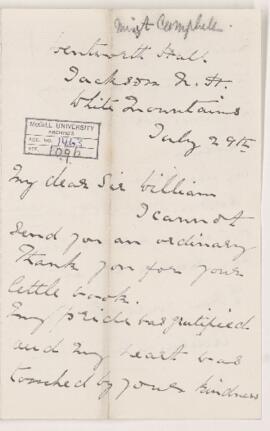 Miss A Campbell.
Wentworth Hall.
Jackson N. H.
White Mountains
July 29th
McGILL UNIVERSITY
ARCHIVES
ACC. NO. 1463
REF.
My dear Sir William
I cannot
send you an ordinary
Thank you for your
little book.
My pride was gratified
and my heart was
touched by your kindness